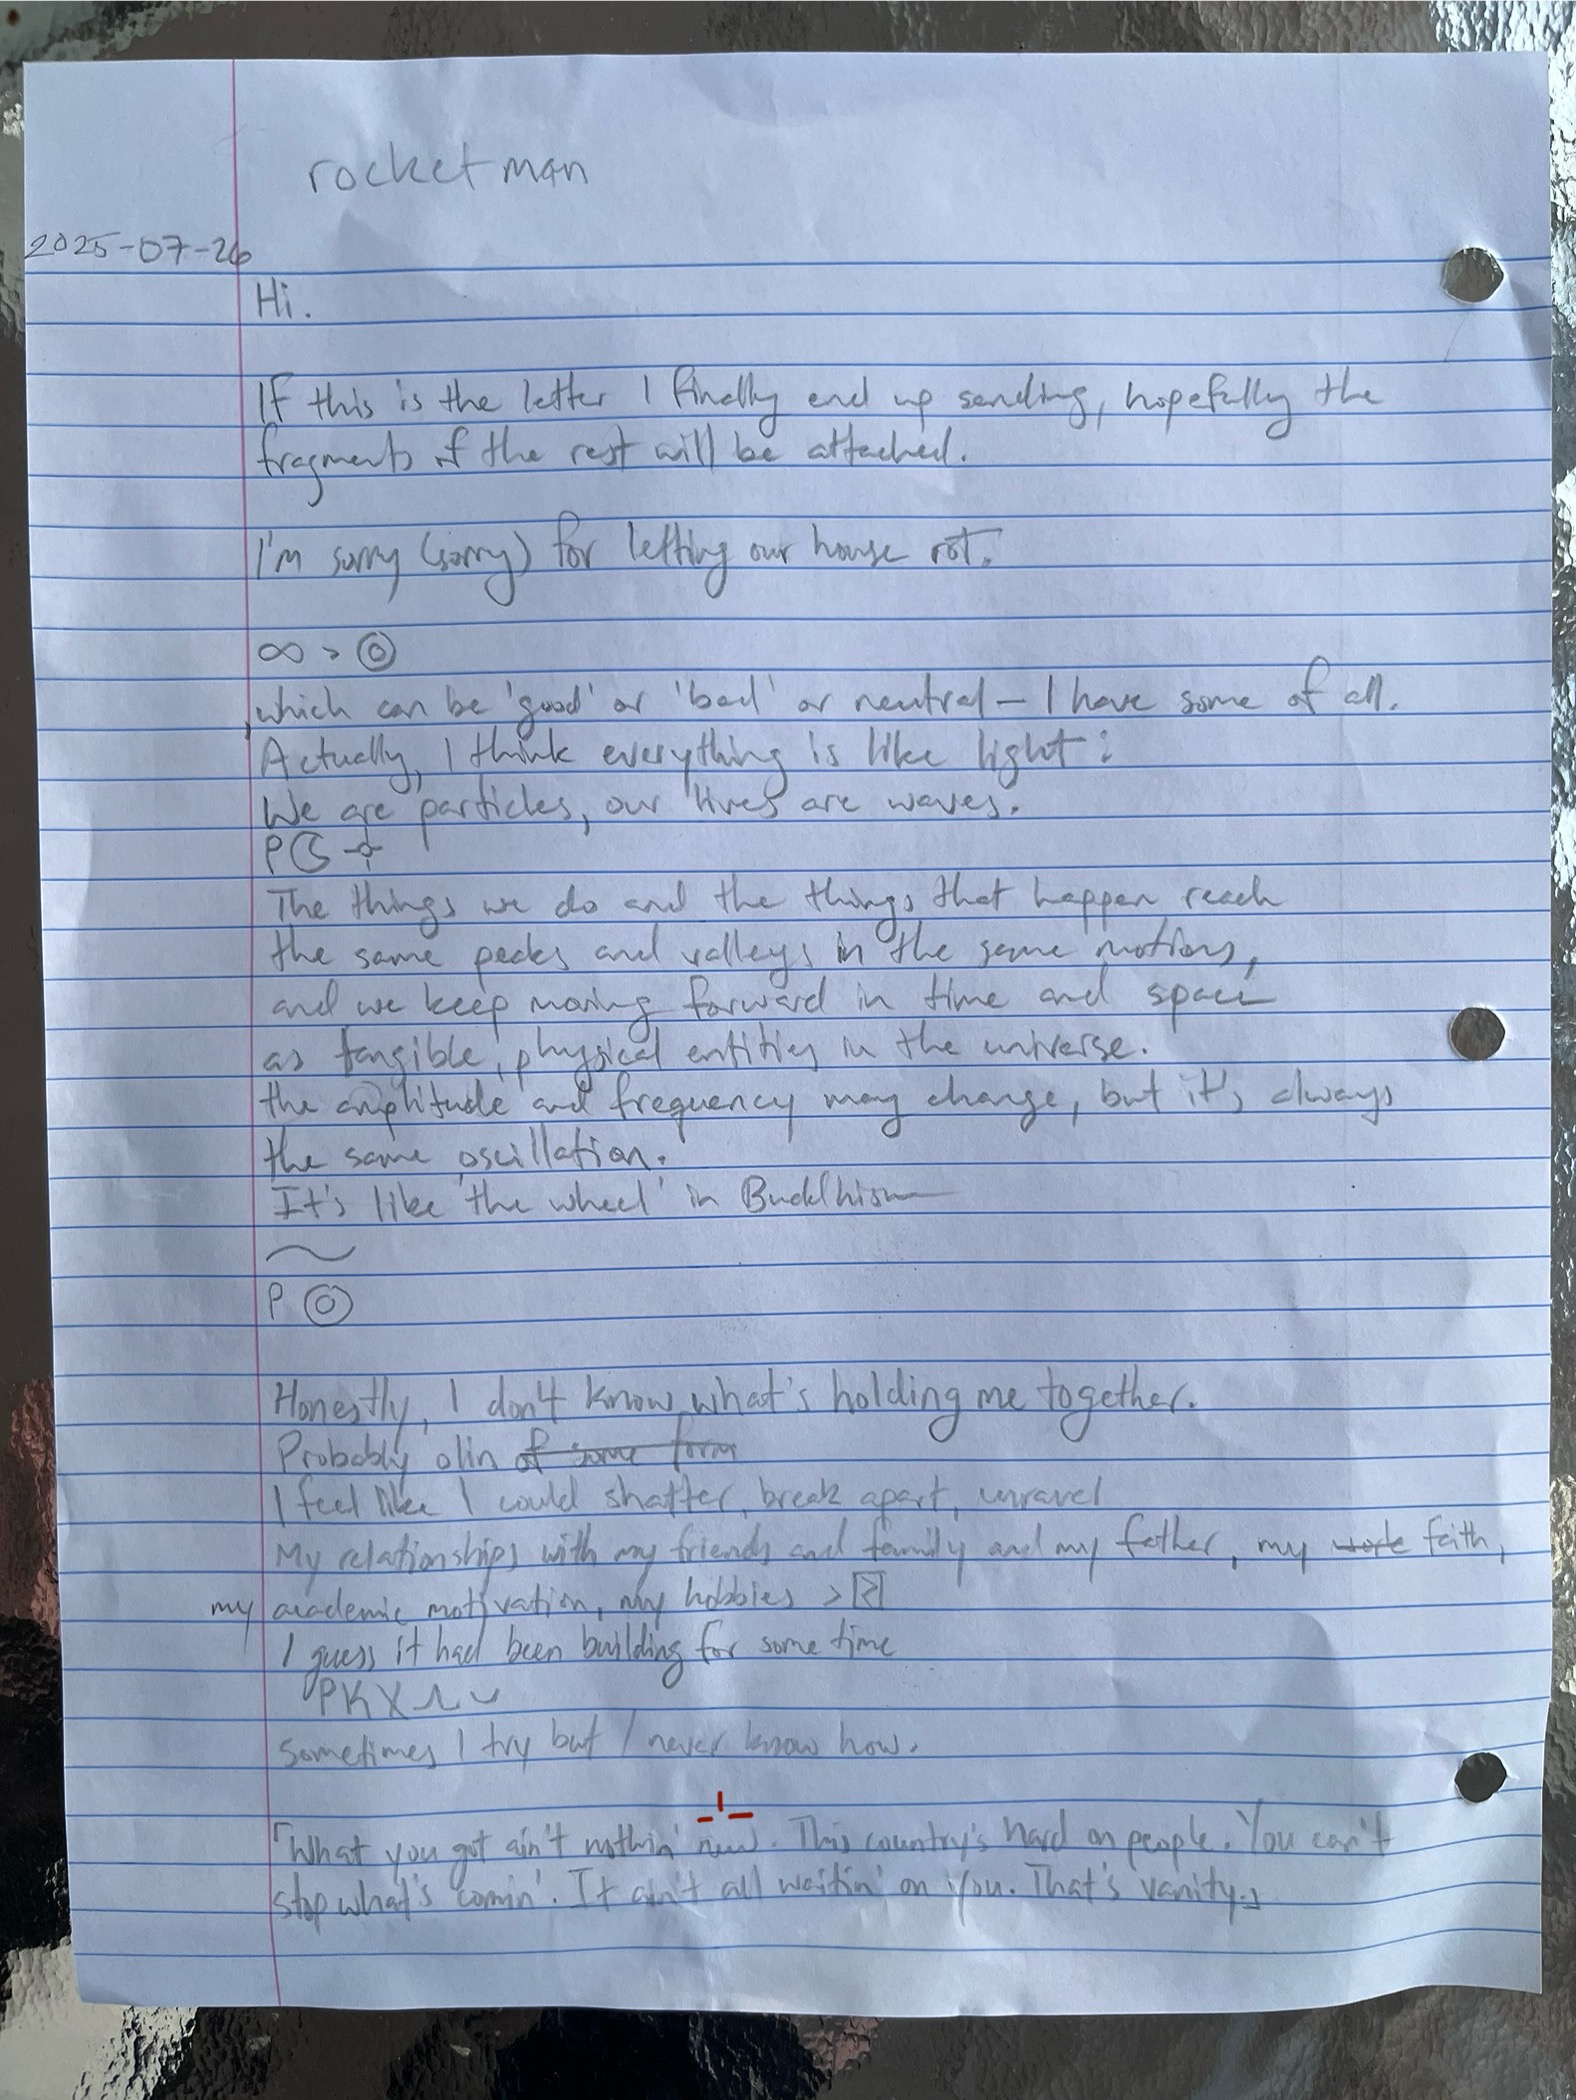 rocket man
2025-07-26
Hi.
If this is the letter I finally end up sending, hopefully the
fragments of the rest will be attached.
I'm sorry (sorry) for letting our house rot.
∞ > ◎
which can be 'good' or 'bad' or neutral — I have some of all.
Actually, I think everything is like light:
We are particles, our lives are waves.
P
The things we do and the things that happen reach
the same peaks and valleys in the same motions,
and we keep moving forward in time and space
as tangible, physical entities in the universe.
the amplitude and frequency may change, but it's always
the same oscillation.
It's like 'the wheel' in Buddhism
~
P ◎
Honestly, I don't know what's holding me together.
Probably olin of some form
I feel like I could shatter, break apart, unravel
My relationships with my friends and family and my father, my work faith,
my academic motivation, my hobbies >
I guess it had been building for some time
PKX
Sometimes I try but I never know how.
「What you got ain't nothin' new. This country's hard on people. You can't
stop what's comin'. It ain't all waitin' on you. That's vanity.」